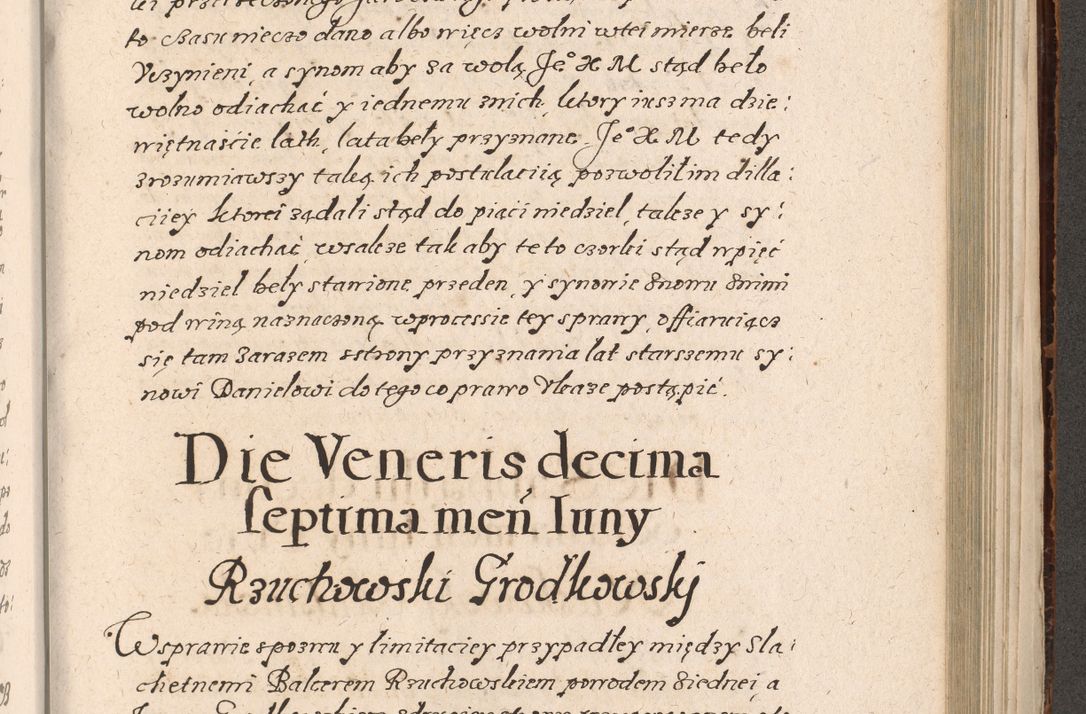 to czasu nieczo dano albo więcz wolni wtei mierze beli
Vczynieni, a synom aby za wolą Je° X M stąd beło
wolno odiachać y iednemu znich, ktory iusz ma dzie:
więtnaście lath, lata beły przyznane. Je° X M tedy
zrozumiawszy taką ich postulatiią pozwolił im dilla:
ciiey ktorei żądali stąd do piąci niedziel, takze y sy:
nom odiachać wsakze tak aby te to czorki stąd w pięć
niedziel beły stawione przeden, y synowie znowu snimi
pod winą naznaczoną w processie tey sprawy, offiaruiącz
się tam zarazem sstrony przyznania lat starszemu sy:
nowi Danielowi do tego co prawo Vkaze postąpić.
Die Veneris decima
septima men̄ Iuny
Rzuchowski Grodkowskj
W sprawie spozwu y limitaciey przypadłey między Sla:
chetnemi Balcerem Rzuchowskiem powodem ziednei a